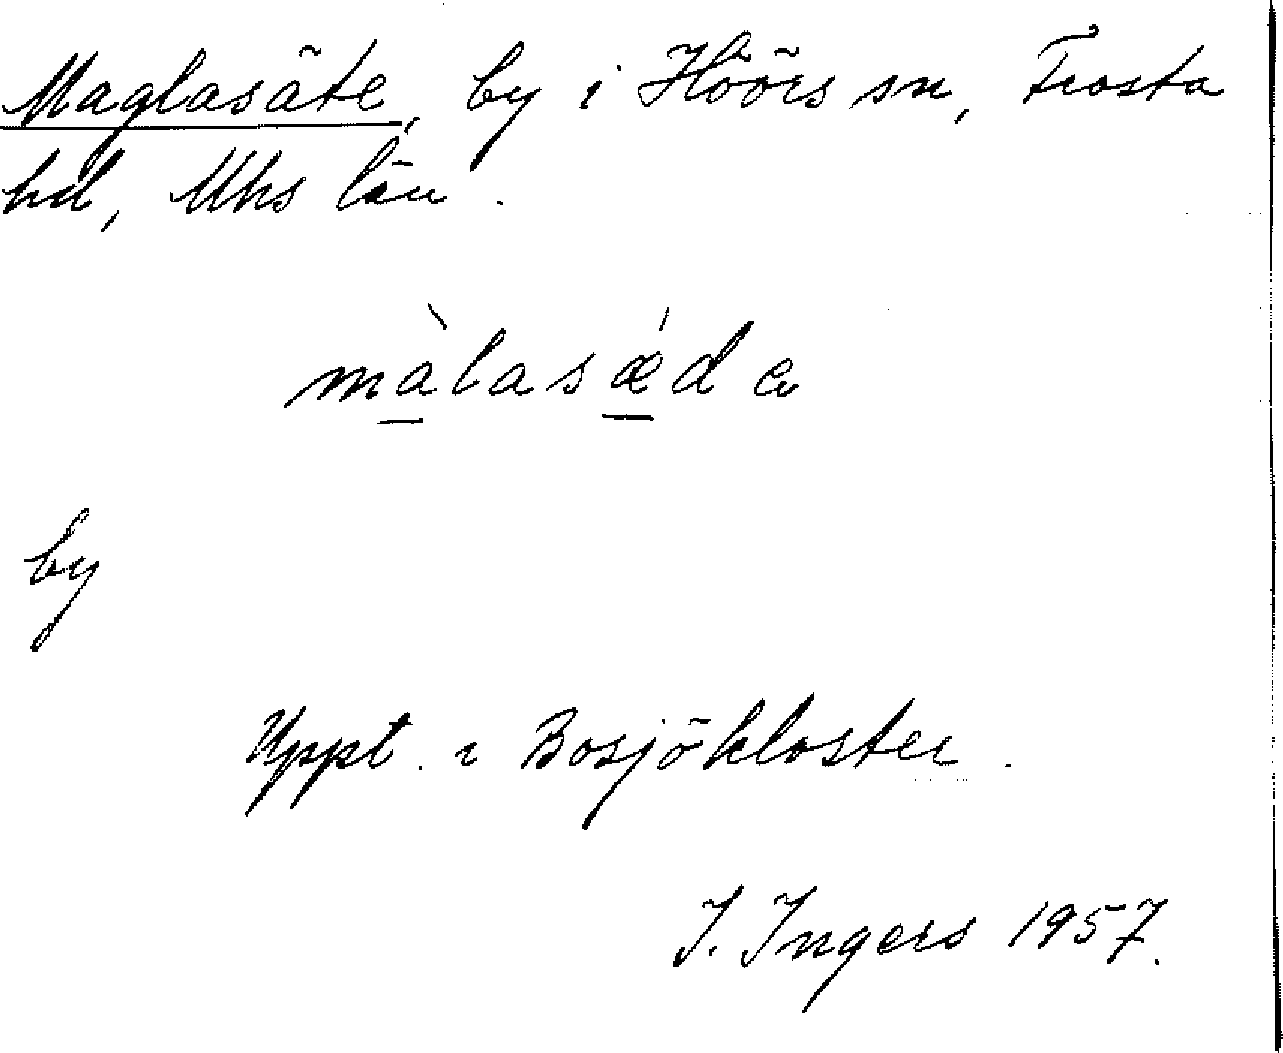 Maglasäte, by i Höörs sn, Frosta
hd, Mhs län.
màlasǽda
by
Uppt. i Bosjökloster.
I. Ingers 1957.